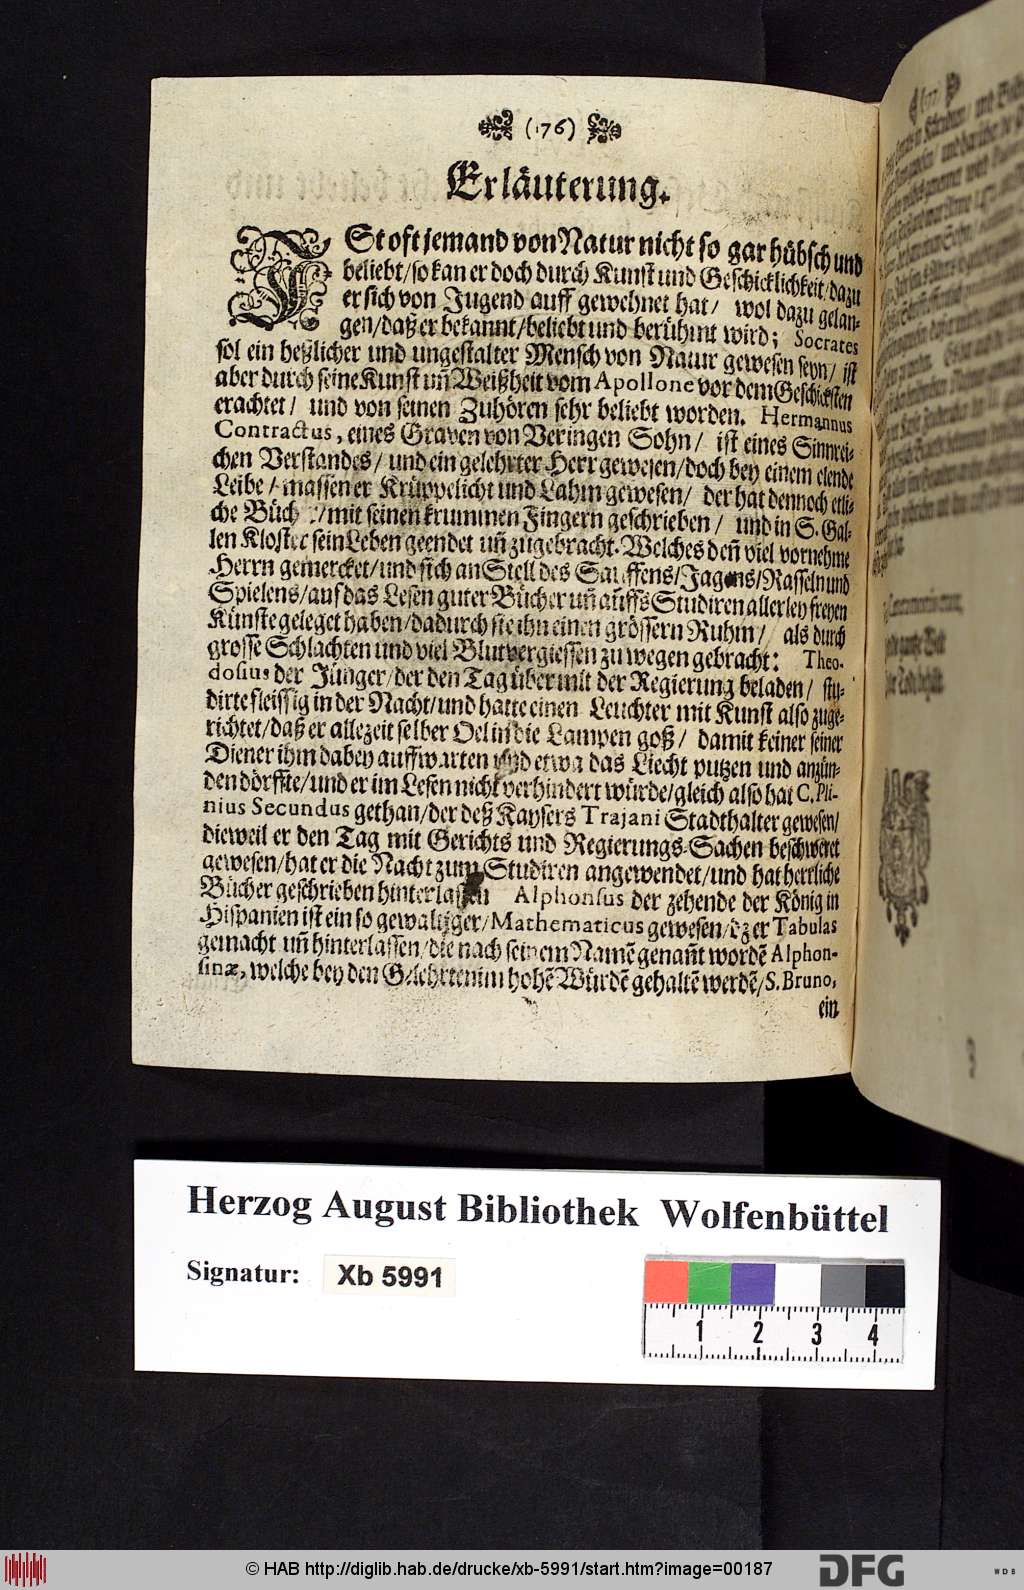 (176)
Erläuterung.
ISt oft jemand von Natur nicht so gar hübsch und
beliebt/ so kan er doch durch Kunst und Geschicklichkeit/ dazu
er sich von Jugend auff gewehnet hat/ wol dazu gelan-
gen/ daß er bekannt/ beliebt und berühmt wird; Socrates
sol ein heßlicher und ungestalter Mensch von Natur gewesen seyn/ ist
aber durch seine Kunst uñ Weißheit vom Apollone vor dem Geschicksten
erachtet/ und von seinen Zuhören sehr beliebt worden. Hermannus
Contractus, eines Graven von Veringen Sohn/ ist eines Sinnrei-
chen Verstandes/ und ein gelehrter Herr gewesen/ doch bey einem elende
Leibe/ massen er Krüppelicht und Lahm gewesen/ der hat dennoch etli-
che Büch/ mit seinen krummen Fingern geschrieben/ und in S. Gal-
len Kloster sein Leben geendet uñ zugebracht. Welches deñ viel vornehme
Herrn gemercket/ und sich an Stell des Sauffens/ Jagens/ Rasseln und
Spielens/ auf das Lesen guter Bücher uñ auffs Studiren allerley freyen
Künste geleget haben/ dadurch sie ihn einen grössern Ruhm/ als durch
grosse Schlachten und viel Blutvergiessen zu wegen gebracht: Theo-
dosius der Jünger/ der den Tag über mit der Regierung beladen/ stu-
dirte fleissig in der Nacht/ und hatte einen Leuchter mit Kunst also zuge-
richtet/ daß er allezeit selber Oel in die Lampen goß/ damit keiner seiner
Diener ihm dabey auffwarten und etwa das Liecht putzen und anzün-
den dörffte/ und er im Lesen nicht verhindert würde/ gleich also hat C. Pli-
nius Secundus gethan/ der deß Kaysers Trajani Stadthalter gewesen/
dieweil er den Tag mit Gerichts und Regierungs-Sachen beschweret
gewesen/ hat er die Nacht zum Studiren angewendet/ und hat herrliche
Bücher geschrieben hinterlassen Alphonsus der zehende der König in
Hispanien ist ein so gewaltiger/ Mathematicus gewesen/ dz er Tabulas
gemacht uñ hinterlassen/ die nach seinem Namẽ genañt wordẽ Alphon-
sinæ, welche bey den Gelehrten im hohẽ Würdẽ gehaltẽ werdẽ/ S. Bruno,
ein
Herzog August Bibliothek Wolfenbüttel
Signatur: Xb 5991
1 2 3 4
© HAB http://diglib.hab.de/drucke/xb-5991/start.htm?image=00187
DFG
WDB